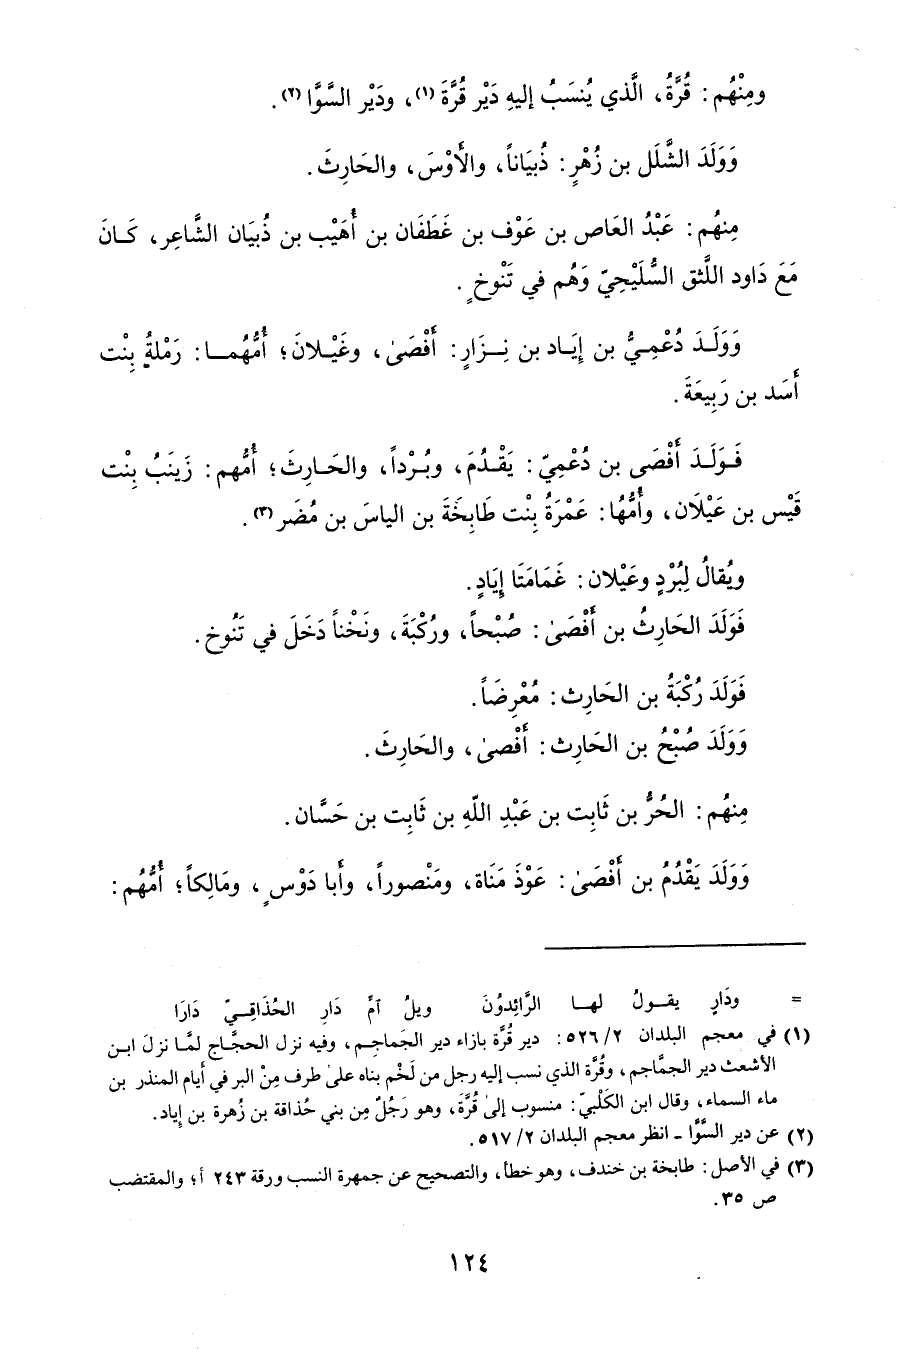 ومِنْهُم : قُرَّةُ، الَّذي يُنسَبُ إليهِ دَيْر قُرَّةَ (١)، ودَيْر السَّوَّا (٢).
وَوَلَدَ الشَّلَل بن زُهْرٍ : ذُبيَاناً، والأَوْسَ، والحَارِثَ.
مِنهُم : عَبْدُ العَاص بن عَوْف بن غَطَفَان بن أُهَيْب بن ذُبيَان الشَّاعِر، كَـانَ
مَعَ دَاود اللَّثق السُّلَيْحِيّ وَهُم في تَنْوخٍ.
وَوَلَـدَ دُعْمِـيُّ بن إيَـاد بن نِـزَارٍ : أَفْصَىٰ، وغَيْـلانَ؛ أُمُّهُمـا : رَمْلةُ بِنْت
أَسَد بن رَبِيعَةَ.
فَـولَـدَ أَفْصَى بن دُعْمِيّ : يَقْـدُمَ، وبُـرْداً، والحَـارِثَ؛ أُمُّهم : زَينَبُ بِنْت
قَيْس بن عَيْلَان، وأُمُّهُا : عَمْرَةُ بِنْت طَابِخَةَ بن الياسَ بن مُضَر (٣).
ويُقالُ لِبُرْدٍ وغَيْلان : غَمَامَتَا إيَادٍ.
فَوَلَدَ الحَارِثُ بن أَفْصَىٰ : صُبْحاً، ورُكْبَةَ، ونَخْناً دَخَلَ في تَنُوخ.
فَوَلَدَ رُكْبَةُ بن الحَارِث : مُعْرِضَاً.
وَوَلَدَ صُبْحُ بن الحَارِث : أَفْصىٰ، والحَارِثَ.
مِنهُم : الحُرُّ بن ثَابِت بن عَبْدِ اللّهِ بن ثَابِت بن حَسَّان.
وَوَلَدَ يَقْدُمُ بن أَفْصَىٰ : عَوْذَ مَنَاة، ومَنْصوراً، وأَبا دَوْسٍ، ومَالِكاً؛ أُمُّهُم :
= ودَارٍ يقــولُ لهــا الرَّائِدوُنَ ويلُ آمِّ دَارِ الحُذَاقِـيّ دَارَا
(١) في معجم البلدان ٢/ ٥٢٦ : دير قُرَّة بازاء دير الجَماجِم، وفيه نزل الحجَّاج لمَّا نزلَ ابـن
الأشعث دير الجمَّاجم، وقُرَّة الذي نسب إليه رجل من لَخْم بناه على طرف مِنْ البر في أيام المنذر بن
ماء السماء، وقال ابن الكَلْبيّ : منسوب إلىٰ قُرَّةَ، وهو رَجُلٌ مِن بني حُذاقة بن زُهرة بن إياد.
(٢) عن دير السَّوَّا ـ انظر معجم البلدان ٢/ ٥١٧.
(٣) في الأصل : طابخة بن خندف، وهو خطأ، والتصحيح عن جمهرة النسب ورقة ٢٤٣ أ؛ والمقتضب
ص ٣٥.
١٢٤